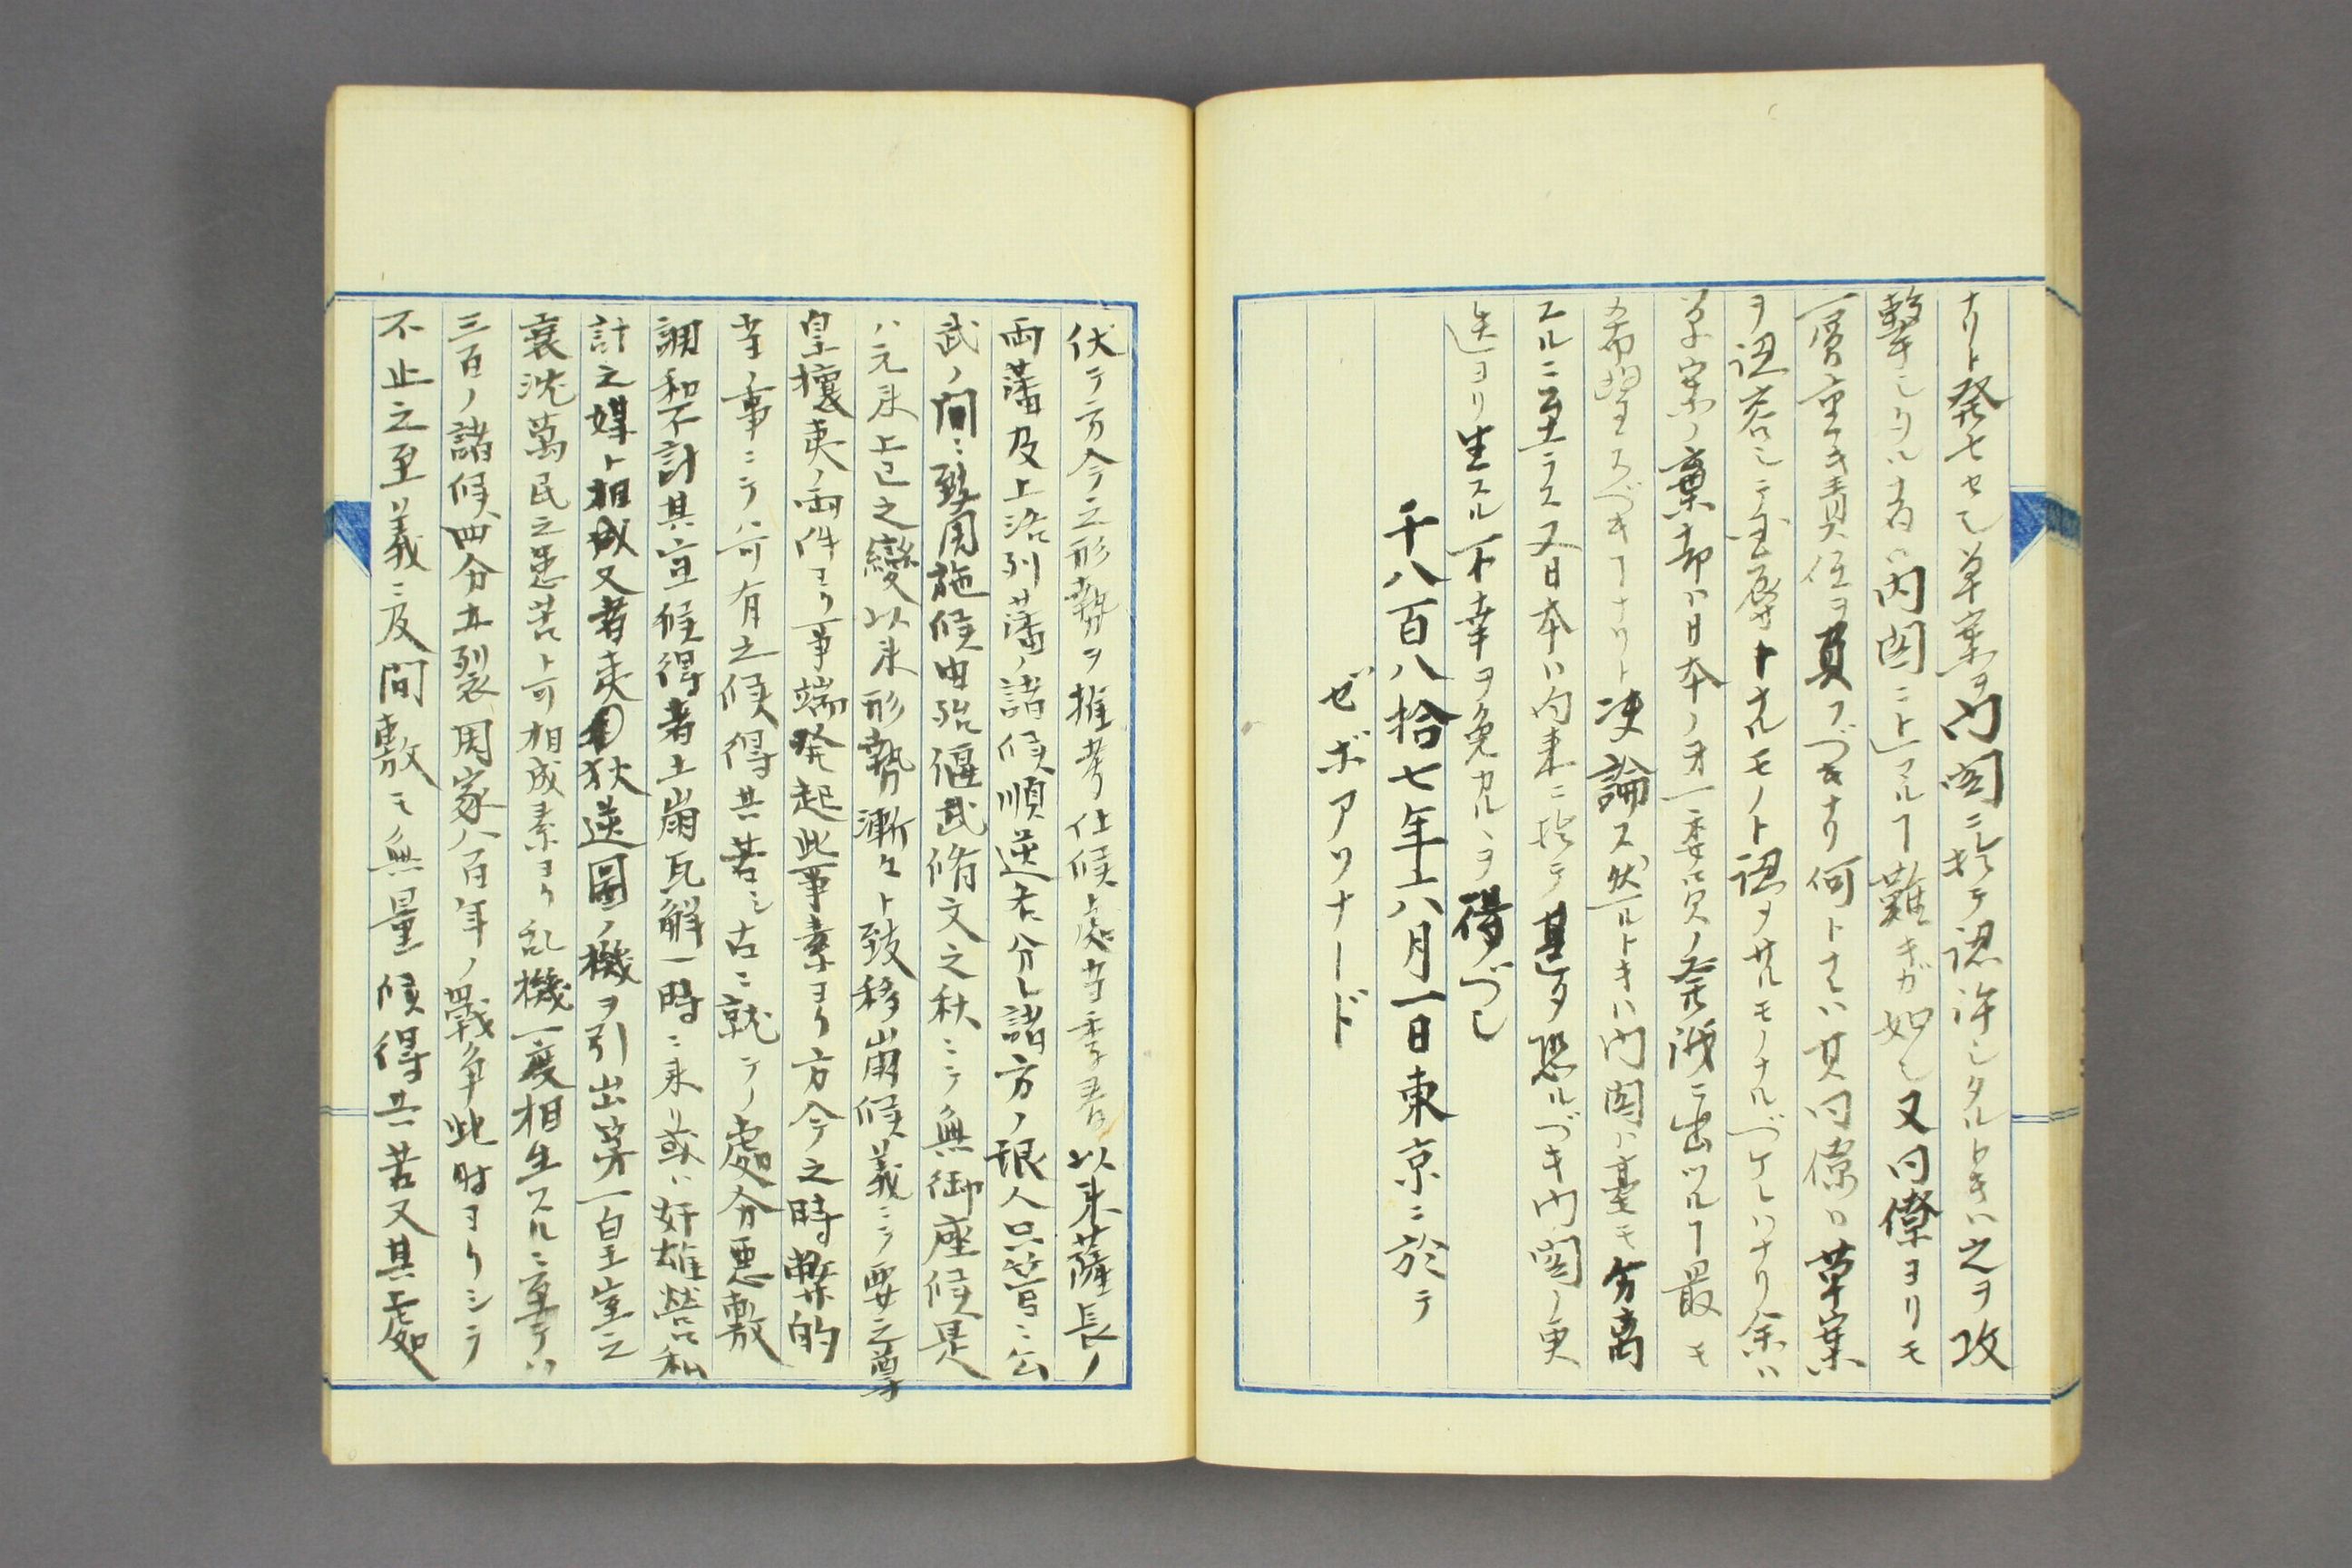 ナリト発セセシ草案ヲ内閣ニ於テ認許シタルトキハ之ヲ攻
撃シタル者ハ内閣ニトマルヿ難キガ如シ又同僚ヨリモ
一層重キ責任ヲ負フヅキナリ何トナレハ其同僚ハ草案
ヲ認容シテ
トナルモノト認ヲサルモノナルヅケレハナリ余ハ
草案ノ棄却ハ日本ノ才一
ニ出ツルヿ最モ
希望スヅキヿナリト決論ス然ルトキハ内閣ハ毫モ分离
スルニ至ラス又日本ハ向来ニ於テ甚タ恐ルヅキ内閣ノ更
迭ヨリ生スル不幸ヲ免カルヽヲ得ヅシ
千八百八拾七年六月一日東京ニ於テ
ゼボアソナード
伏テ方今之形勢ヲ推考仕候処当季春以来薩長ノ
両藩及上洛列藩ノ諸候順逆右分レ諸方ノ
人只管ニ公
武ノ間ニ致周施候由
偃武脩文之秋ニテ無御座候是
ハ元来上巳之變以来形勢漸々ト致移崩候義ニテ要之尊
皇攘夷ノ両件ヨリ事端発起此事素ヨリ方今之時弊的
当ノ事ニテ可有之候得共若シ古ニ就テノ處分悪敷
調和不計其宜候得者土崩瓦解一時ニ来リ或ハ奸雄營私
計之媒ト相成又者夷狄逆圖ノ機ヲ引出第一皇室之
衰沈萬民之患苦ト可相成素ヨリ乱機一度相生スルニ至テハ
三百ノ諸候四分五裂周家八百年ノ戰争此時ヨリシテ
不止之至リ義ニ及間敷モ無量候得共若又其處